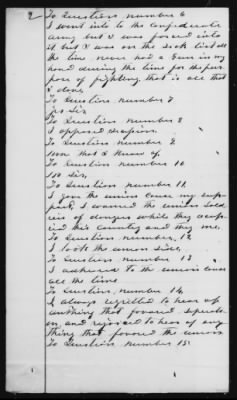 2 To Question number 6
I went into the Confederate
army but I was forced into
it but I was on the sick list all
the time never had a gun in my
hand during the time for the pur
pose of fighting that is all that
I done
To Question number 7
yes Sir
To Question number 8
I opposed
To Question number 9
none that I know of
To Question number 10
No Sir
To Question number 11
I gave the union cause my sup
port, I warned the union Sold
iers of danger while they occup
ied this Country and they me.
To Question number, 12
I took the union side,
To Question number 13
I adhered to the union cause
all the time
To Question, number 14
I always regretted to hear of
anthing that favored
and rejoiced to hear of any
thing that favored the union
To Question number 15